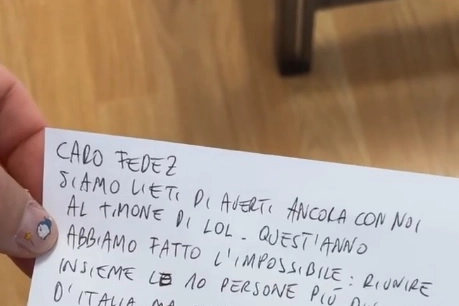 CARO FEDEZ
SIAMO LIETI DI AVERTI ANCORA CON NOI
AL TIMONE DI LOL - QUEST'ANNO
ABBIAMO FATTO L'IMPOSSIBILE: RIUNIRE
INSIEME LE 10 PERSONE PIÙ
D'ITALIA MA